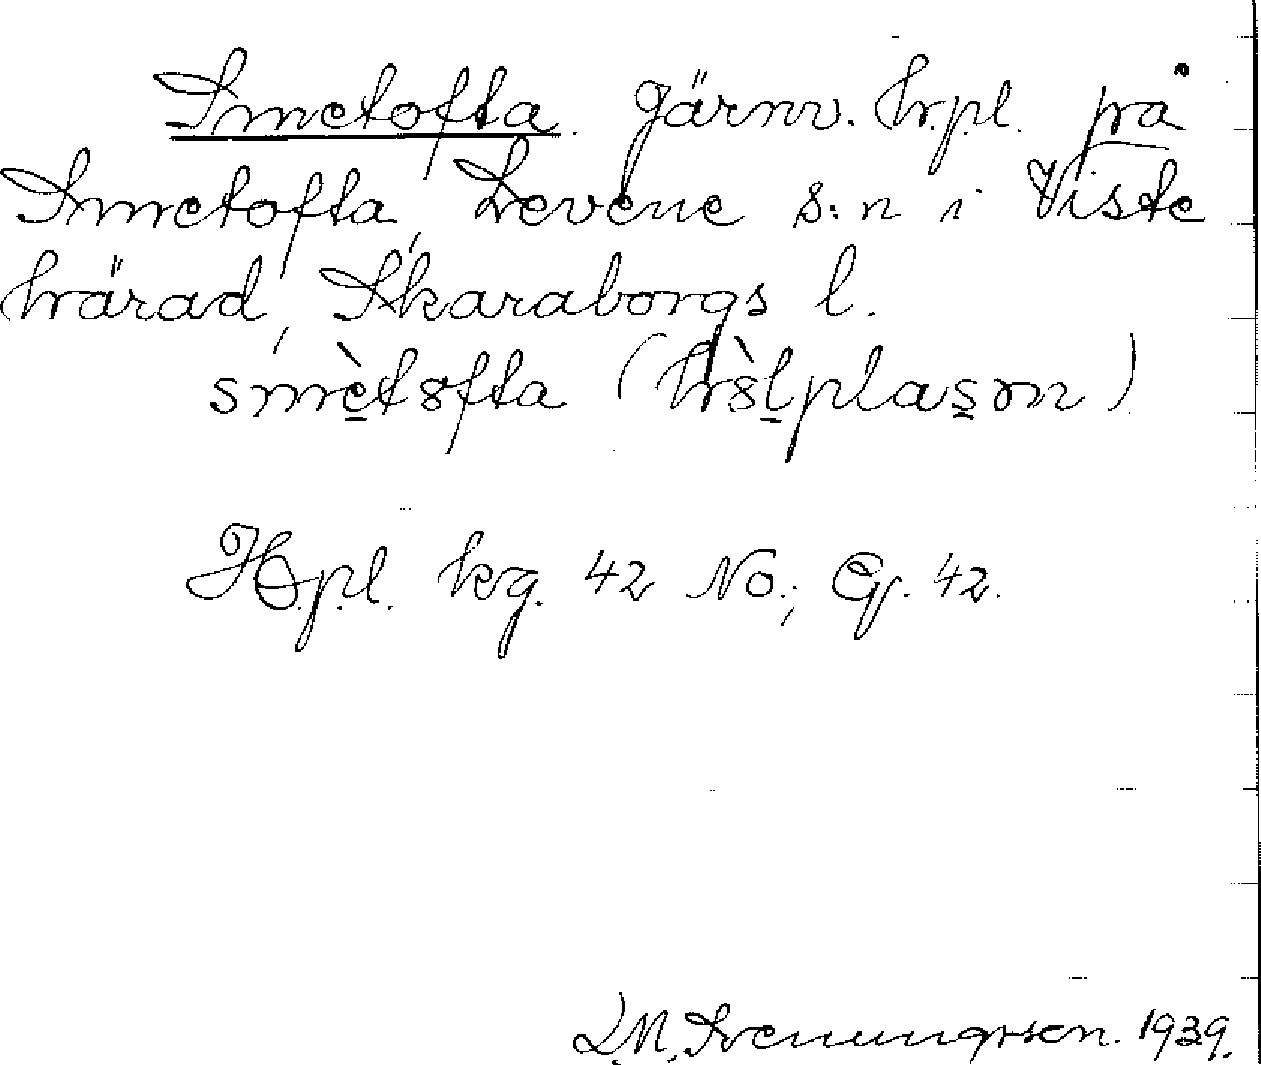 Smetofta. Järnv. h.pl. på
Smetofta, Levene s:n i Viste
härad, Skaraborgs l.
smètofta
H.pl. kg. 42 No.; Gj. 42.
D.M. Svenungsson. 1939.